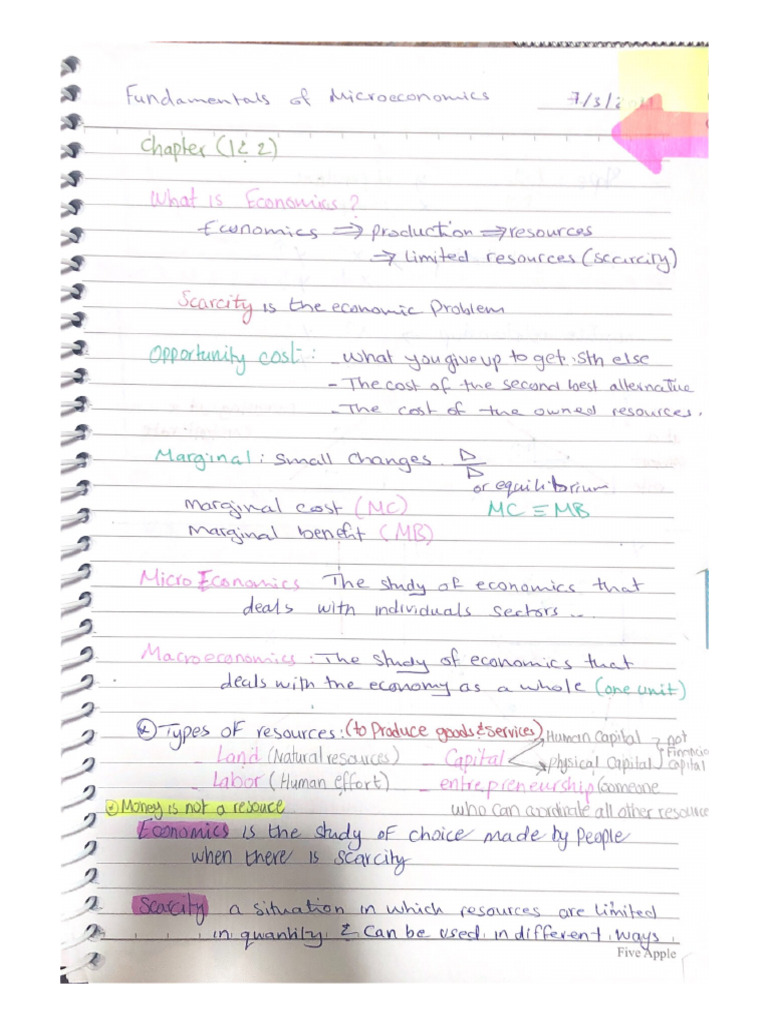 Fundamentals of Microeconomics 7/3/
Chapter (1 & 2)
What is Economics?
Economics ⇒ production ⇒ resources
⇒ limited resources (scarcity)
Scarcity is the economic Problem
Opportunity cost: - what you give up to get sth else
- The cost of the second best alternative
- The cost of the owned resources.
Marginal: small changes. Δ/Δ
or equilibrium
marginal cost (MC) MC = MB
marginal benefit (MB)
Micro Economics The study of economics that
deals with individuals sectors...
Macroeconomics: The study of economics that
deals with the economy as a whole (one unit)
Types of resources: (to Produce goods & services) Human Capital not
- Land (Natural resources) - Capital physical Capital Financial capital
- Labor (Human effort) - entrepreneurship (someone
Money is not a resouce who can coordinate all other resource
Economics is the study of choice made by People
when there is scarcity
Scarcity a situation in which resources are limited
in quantity & can be used in different ways.
Five Apple